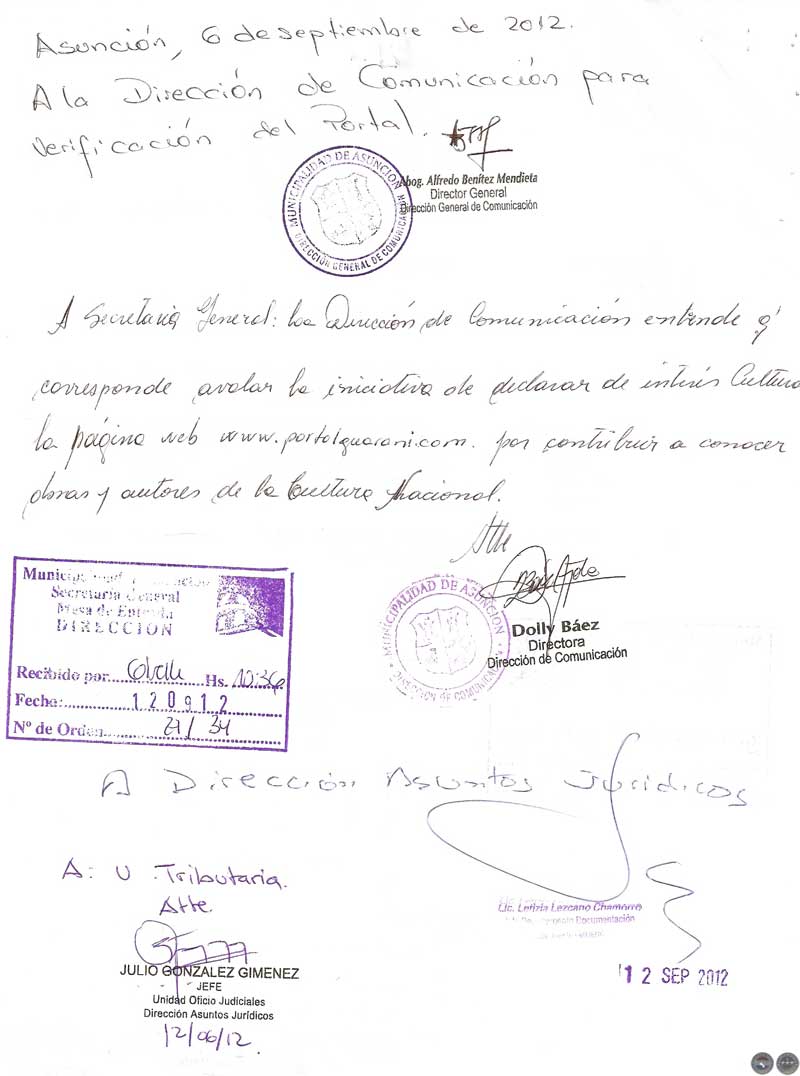 Asunción, 6 de septiembre de 2012.
A la Dirección de Comunicación para
verificación del Portal.
MUNICIPALIDAD DE ASUNCION
DIRECCIÓN GENERAL DE COMUNICACIÓN
Abog. Alfredo Benítez Mendieta
Director General
Dirección General de Comunicación
A Secretaria General: La Dirección de Comunicación entiende q'
corresponde avalar la iniciativa de declarar de interés Cultura
la página web www.portalguarani.com. por contribuir a conocer
obras y autores de la Cultura Nacional.
Atte
MUNICIPALIDAD DE ASUNCION
DIRECCION DE COMUNICACION
Dolly Báez
Directora
Dirección de Comunicación
Secretaría General
Mesa de Entrada
DIRECCION
Recibido por Hs. 10:36
Fecha: 120912
Nº de Orden 21/34
A Dirección Asuntos Jurídicos
A: U. Tributaria.
Atte.
Lic. Letizia Lezcano Chamorro
Documentación
JULIO GONZALEZ GIMENEZ
JEFE
Unidad Oficio Judiciales
Dirección Asuntos Jurídicos
12/06/12.
12 SEP 2012